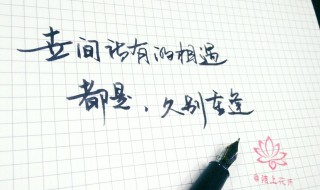 世间所有的相遇
都是，久别重逢